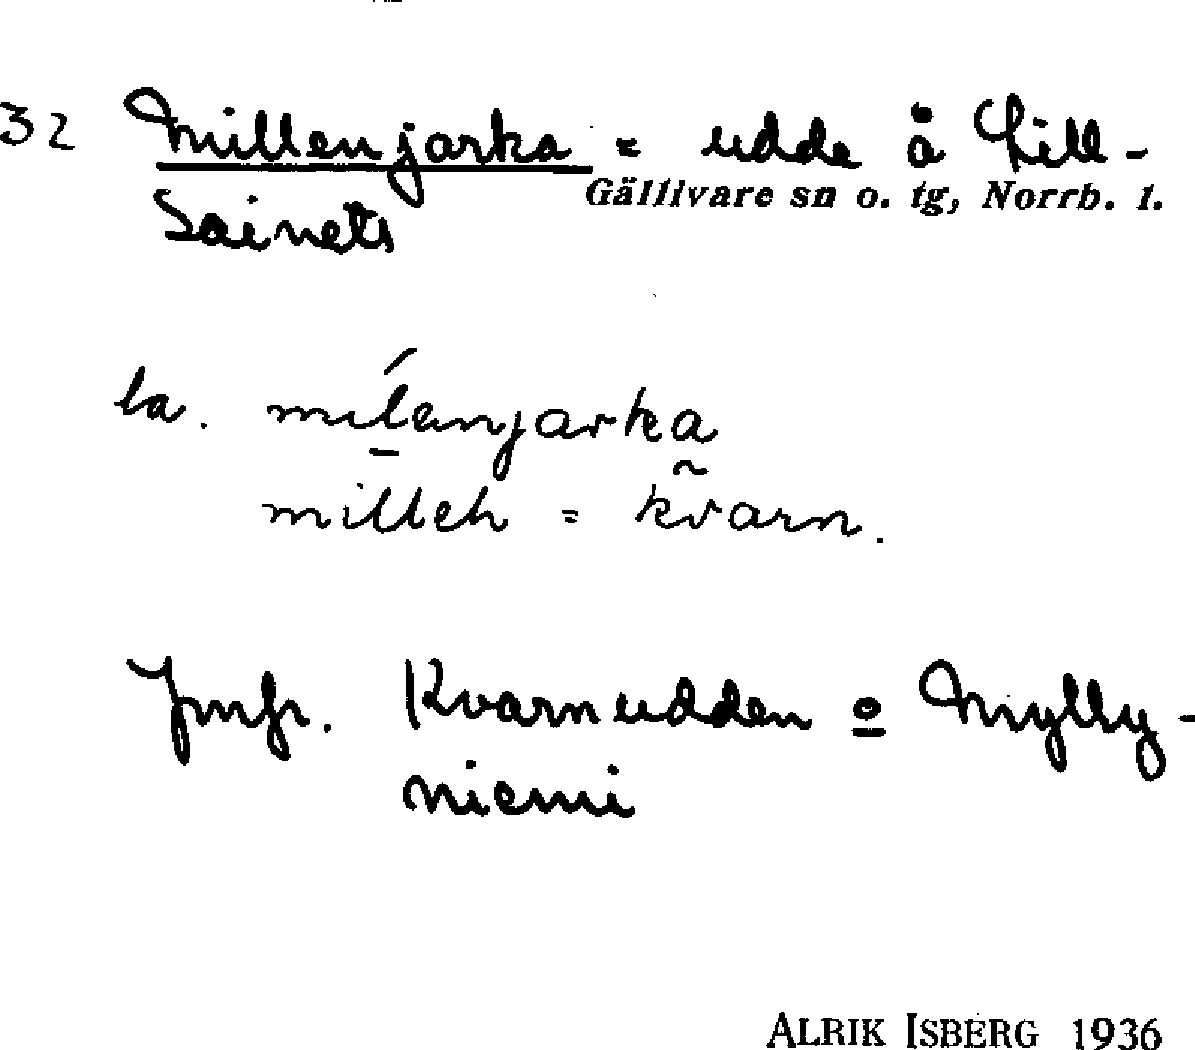 32 Millenjarka = udde å Lill-
Gällivare sn o. tg, Norrb. l.
Sainets
la. mílanjarka
milleh = kvarn.
Jmfr. Kvarnudden o Mylly-
niemi
ALRIK ISBERG 1936